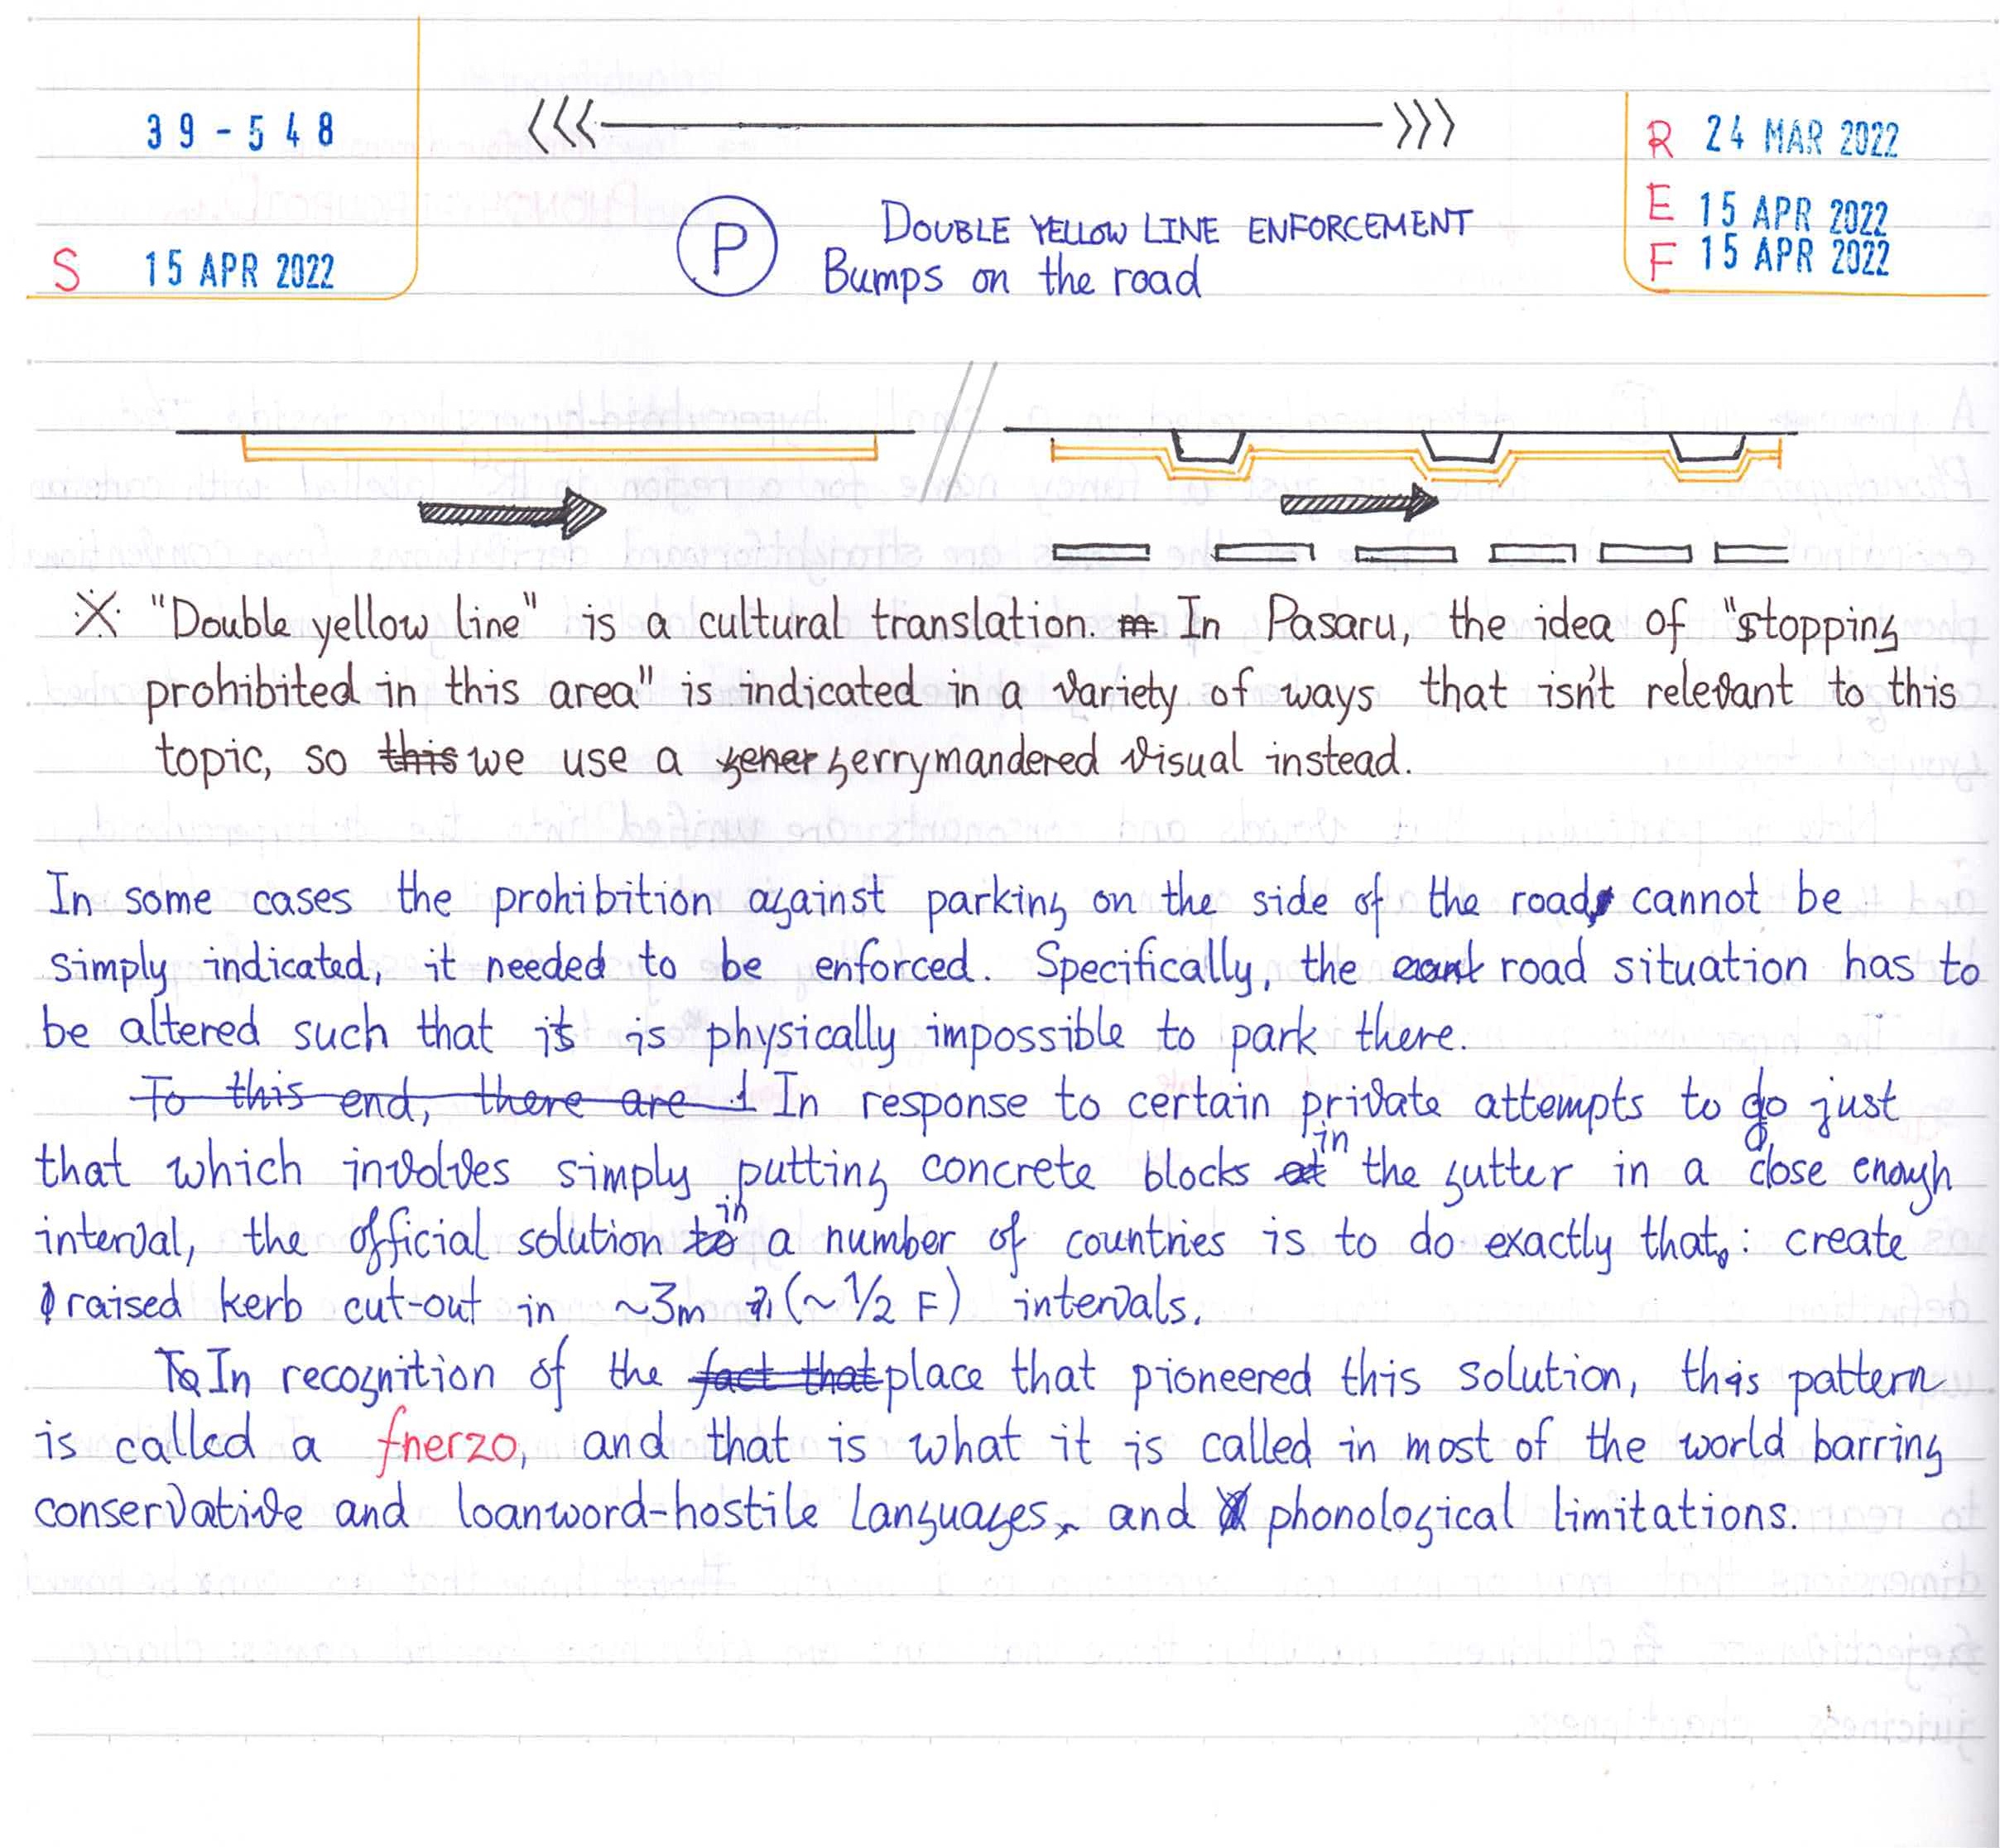 39-548
S 15 APR 2022
R 24 MAR 2022
E 15 APR 2022
F 15 APR 2022
P
DOUBLE YELLOW LINE ENFORCEMENT
Bumps on the road
※ "Double yellow line" is a cultural translation. In Pasaru, the idea of "stopping
prohibited in this area" is indicated in a variety of ways that isn't relevant to this
topic, so this we use a gener gerrymandered visual instead.
In some cases the prohibition against parking on the side of the road cannot be
simply indicated, it needed to be enforced. Specifically, the road situation has to
be altered such that it is physically impossible to park there.
To this end, there are In response to certain private attempts to do just
that which involves simply putting concrete blocks at in the gutter in a close enough
interval, the official solution to in a number of countries is to do exactly that: create
raised kerb cut-out in ~3m (~1/2 F) intervals.
To In recognition of the fact that place that pioneered this solution, this pattern
is called a fnerzo, and that is what it is called in most of the world barring
conservative and loanword-hostile languages, and phonological limitations.